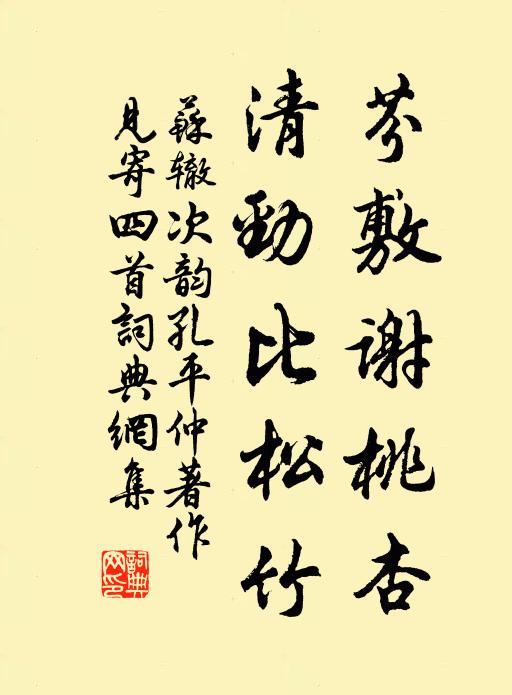 芬敷谢桃杏
清勁比松竹
蘇辙次韵孔平仲著作
見寄四首詞典網集
詞典网印